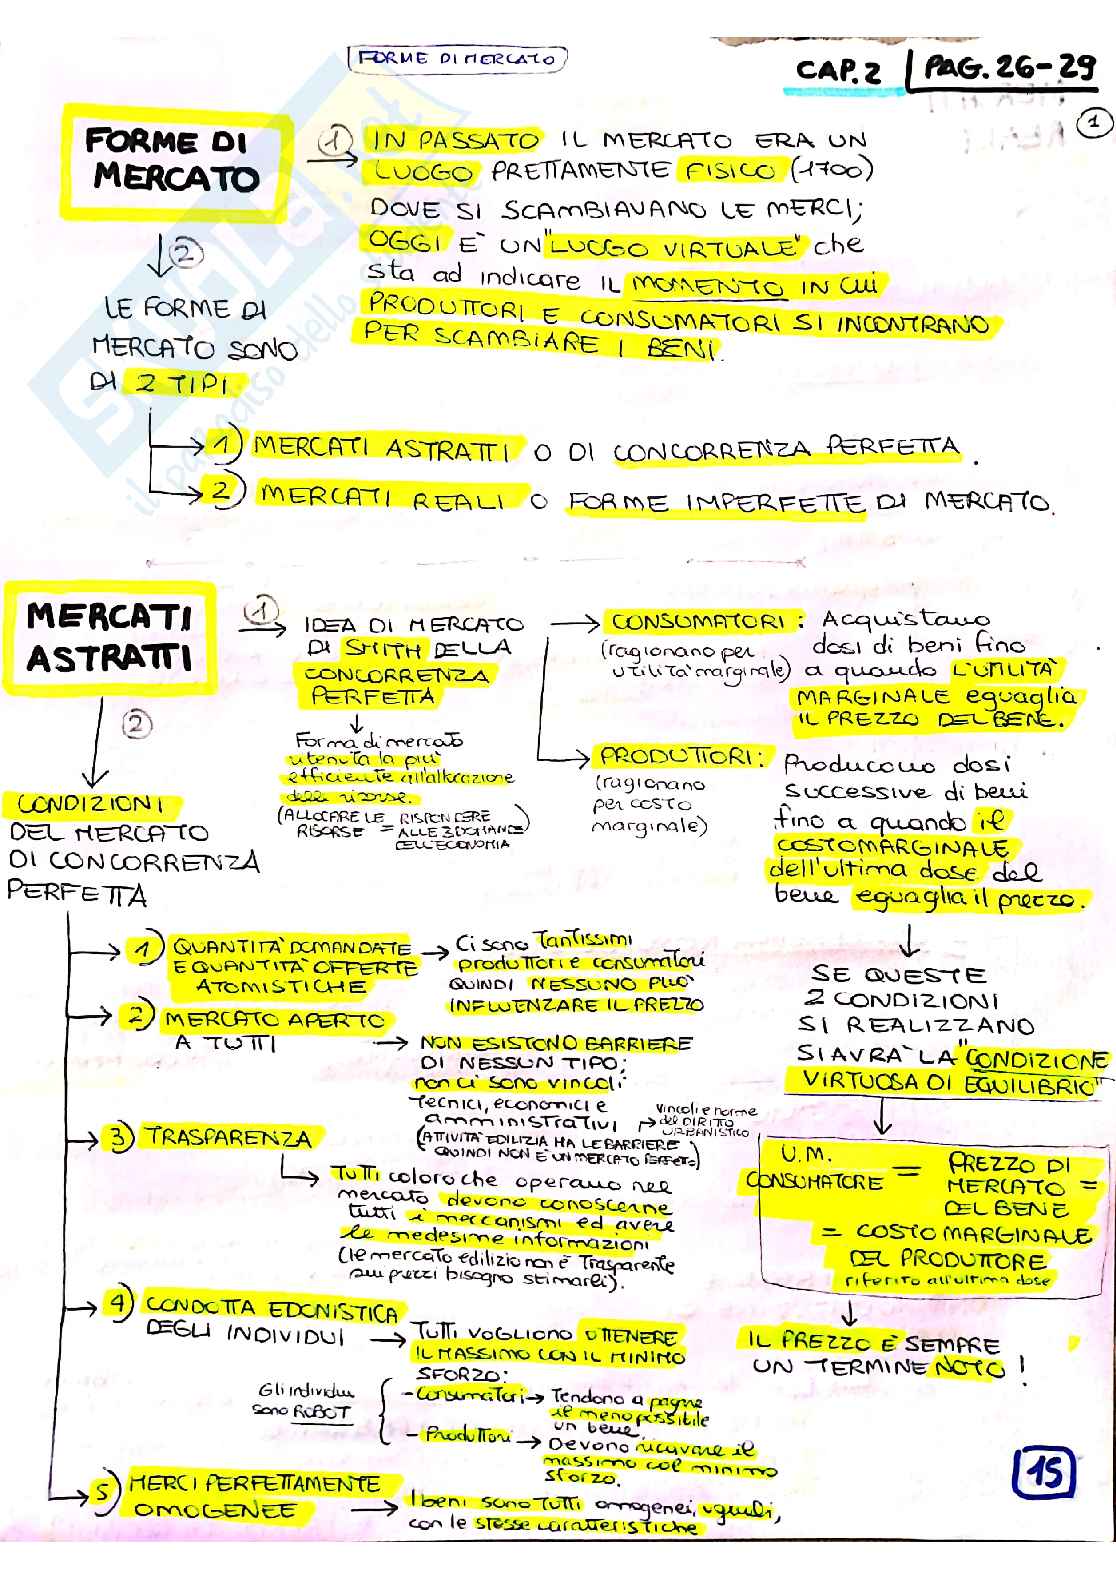 FORME DI MERCATO
CAP. 2 | PAG. 26-29
1
FORME DI
MERCATO
1 IN PASSATO IL MERCATO ERA UN
LUOGO PRETTAMENTE FISICO (1700)
DOVE SI SCAMBIAVANO LE MERCI;
OGGI E' UN "LUOGO VIRTUALE" che
sta ad indicare IL MOMENTO IN CUI
PRODUTTORI E CONSUMATORI SI INCONTRANO
PER SCAMBIARE I BENI.
2
LE FORME DI
MERCATO SONO
DI 2 TIPI
1) MERCATI ASTRATTI O DI CONCORRENZA PERFETTA.
2) MERCATI REALI O FORME IMPERFETTE DI MERCATO.
MERCATI
ASTRATTI
1 IDEA DI MERCATO
DI SMITH DELLA
CONCORRENZA
PERFETTA
Forma di mercato
ritenuta la più
efficiente all'allocazione
delle risorse.
(ALLOCARE LE RISORSE = RISPONDERE
ALLE 3 DOMANDE
DELL'ECONOMIA
CONSUMATORI: Acquistano
(ragionano per
utilità marginale)
dosi di beni fino
a quando L'UTILITÀ
MARGINALE eguaglia
IL PREZZO DEL BENE.
PRODUTTORI:
(ragionano
per costo
marginale)
Producono dosi
successive di beni
fino a quando il
COSTO MARGINALE
dell'ultima dose del
bene eguaglia il prezzo.
SE QUESTE
2 CONDIZIONI
SI REALIZZANO
SI AVRA' LA "CONDIZIONE
VIRTUOSA DI EQUILIBRIO"
U.M.
CONSUMATORE = PREZZO DI
MERCATO =
DEL BENE
= COSTO MARGINALE
DEL PRODUTTORE
riferito all'ultima dose
IL PREZZO E' SEMPRE
UN TERMINE NOTO!
2
CONDIZIONI
DEL MERCATO
DI CONCORRENZA
PERFETTA
1) QUANTITA' DOMANDATE
E QUANTITA' OFFERTE
ATOMISTICHE
Ci sono tantissimi
produttori e consumatori
QUINDI NESSUNO PUO'
INFLUENZARE IL PREZZO
2) MERCATO APERTO
A TUTTI
NON ESISTONO BARRIERE
DI NESSUN TIPO;
non ci sono vincoli
tecnici, economici e
amministrativi
vincoli e norme
del DIRITTO
URBANISTICO
(ATTIVITA' EDILIZIA HA LE BARRIERE
QUINDI NON E' UN MERCATO PERFETTO)
3) TRASPARENZA
TUTTI coloro che operano nel
mercato devono conoscerne
tutti i meccanismi ed avere
le medesime informazioni
(il mercato edilizio non è Trasparente
sui prezzi bisogna stimarli).
4) CONDOTTA EDONISTICA
DEGLI INDIVIDUI
TUTTI VOGLIONO OTTENERE
IL MASSIMO CON IL MINIMO
SFORZO:
Gli individui
sono ROBOT
- Consumatori → Tendono a pagare
il meno possibile
un bene.
- Produttori → Devono ricavare il
massimo col minimo
sforzo.
5) MERCI PERFETTAMENTE
OMOGENEE
I beni sono tutti omogenei, uguali,
con le stesse caratteristiche
15
SKUOLA.net
il paradiso dello studente